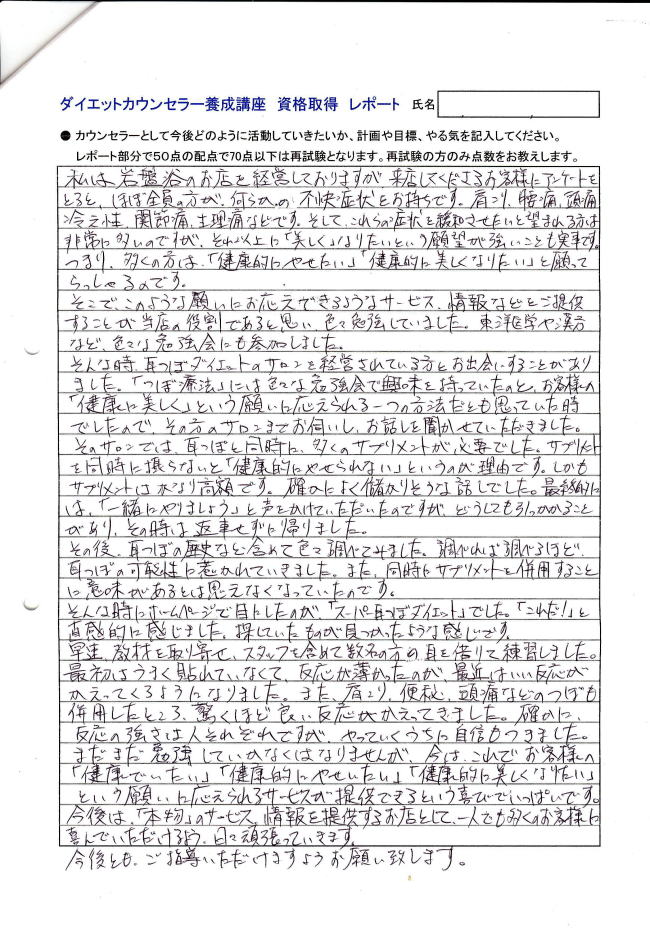 ダイエットカウンセラー養成講座 資格取得 レポート 氏名
● カウンセラーとして今後どのように活動していきたいか、計画や目標、やる気を記入してください。
レポート部分で50点の配点で70点以下は再試験となります。再試験の方のみ点数をお教えします。
私は、岩盤浴のお店を経営しておりますが、来店してくださるお客様にアンケートを
とると、ほぼ全員の方が、何らかの不快症状をお持ちです。肩こり、腰痛、頭痛
冷え性、関節痛、生理痛などです。そして、これらの症状を緩和させたいと望まれる方は
非常に多いのですが、それ以上に「美しく」なりたいという願望が強いことも実事です。
つまり、多くの方は、「健康的にやせたい」「健康的に美しくなりたい」と願って
らっしゃるのです。
そこで、このような願いにお応えできるようなサービス、情報などをご提供
することが当店の役割であると思い、色々勉強していました。東洋医学や漢方
など、色々な勉強会にも参加しました。
そんな時、耳つぼダイエットのサロンを経営されている方とお出会いすることがあり
ました。「つぼ療法」には色々な勉強会で興味を持っていたのと、お客様の
「健康に美しく」という願いに応えられる一つの方法だとも思っていた時
でしたので、その方のサロンまでお伺いし、お話しを聞かせていただきました。
そのサロンでは、耳つぼと同時に、多くのサプリメントが必要でした。サプリメント
を同時に摂らないと「健康的にやせられない」というのが理由です。しかも
サプリメントはかなり高額です。確かによく儲かりそうな話しでした。最終的に
は、「一緒にやりましょう」と声をかけていただいたのですが、どうしても引っかかること
があり、その時は返事せずに帰りました。
その後、耳つぼの歴史など含めて色々調べてみました。調べれば調べるほど、
耳つぼの可能性に惹かれていきました。また、同時にサプリメントを併用すること
に意味があるとは思えなくなっていたのです。
そんな時にホームページで目にしたのが、「スーパー耳つぼダイエット」でした。「これだ!」と
直感的に感じました。探していたものが見つかったような感じです。
早速、教材を取り寄せ、スタッフを含めて数名の方の耳を借りて練習しました。
最初はうまく貼れていなくて、反応が薄かったのが、最近はいい反応が
かえってくるようになりました。また、肩こり、便秘、頭痛などのつぼも
併用したところ、驚くほど良い反応がかえってきました。確かに、
反応の強さは人それぞれですが、やっていくうちに自信もつきました。
まだまだ勉強していかなくはなりませんが、今は、これでお客様の
「健康でいたい」「健康的にやせたい」「健康的に美しくなりたい」
という願いに応えられるサービスが提供できるという喜びでいっぱいです。
今後は、「本物」のサービス、情報を提供するお店として、一人でも多くのお客様に
喜んでいただけるよう、日々頑張っていきます。
今後とも、ご指導いただけますようお願い致します。